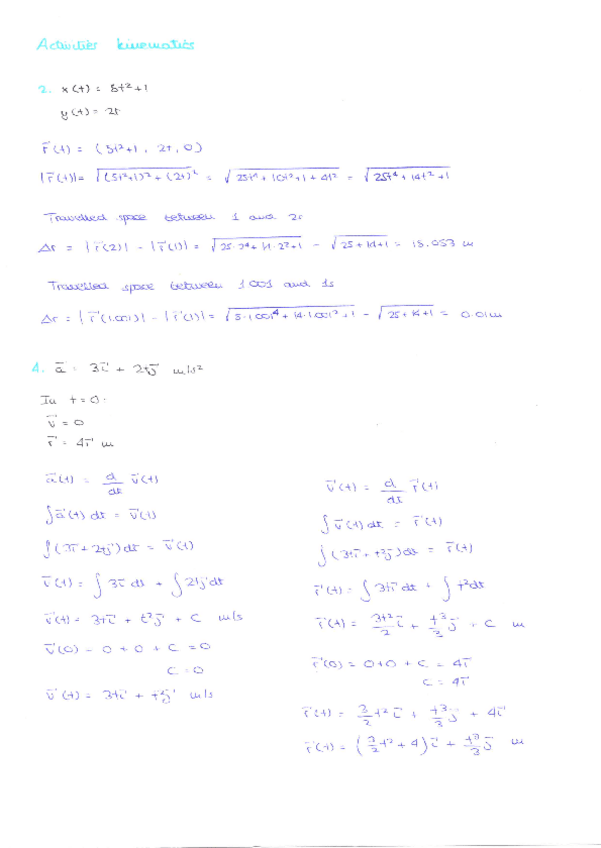 Activities kinematics
2. x(t) = 5t²+1
y(t) = 2t
r⃗(t) = (5t²+1, 2t, 0)
|r⃗(t)| = √((5t²+1)² + (2t)²) = √(25t⁴ + 10t² + 1 + 4t²) = √(25t⁴ + 14t² + 1)
Travelled space between 1 and 2s
Δr = |r⃗(2)| - |r⃗(1)| = √(25·2⁴ + 14·2² + 1) - √(25 + 14 + 1) = 15.053 m
Travelled space between 1.001 and 1s
Δr = |r⃗(1.001)| - |r⃗(1)| = √(5·1.001⁴ + 14·1.001² + 1) - √(25 + 14 + 1) = 0.01 m
4. a⃗ = 3i⃗ + 2tj⃗ m/s²
In t = 0:
v⃗ = 0
r⃗ = 4i⃗ m
a⃗(t) = d/dt v⃗(t)
∫a⃗(t) dt = v⃗(t)
∫(3i⃗ + 2tj⃗) dt = v⃗(t)
v⃗(t) = ∫3i⃗ dt + ∫2tj⃗ dt
v⃗(t) = 3ti⃗ + t²j⃗ + C m/s
v⃗(0) = 0 + 0 + C = 0
C = 0
v⃗(t) = 3ti⃗ + t²j⃗ m/s
v⃗(t) = d/dt r⃗(t)
∫v⃗(t) dt = r⃗(t)
∫(3ti⃗ + t²j⃗) dt = r⃗(t)
r⃗(t) = ∫3ti⃗ dt + ∫t² dt
r⃗(t) = 3t²/2 i⃗ + t³/3 j⃗ + C m
r⃗(0) = 0+0 + C = 4i⃗
C = 4i⃗
r⃗(t) = 3/2 t² i⃗ + t³/3 j⃗ + 4i⃗
r⃗(t) = (3/2 t² + 4) i⃗ + t³/3 j⃗ m